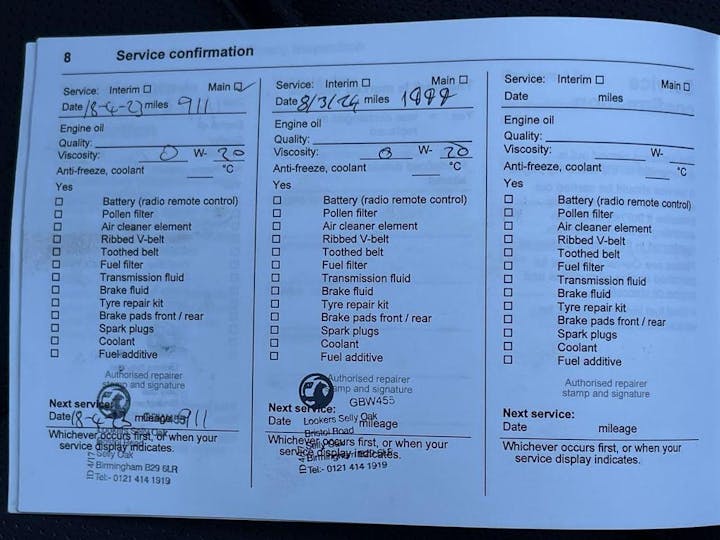 8 Service confirmation
Service: Interim Main
Date 18-4-23 miles 911
Engine oil
Quality:
Viscosity: 0 W- 20
Anti-freeze, coolant °C
Yes
Battery (radio remote control)
Pollen filter
Air cleaner element
Ribbed V-belt
Toothed belt
Fuel filter
Transmission fluid
Brake fluid
Tyre repair kit
Brake pads front / rear
Spark plugs
Coolant
Fuel additive
Authorised repairer
stamp and signature
Next service:
Date 18-4- mileage 911
Whichever occurs first, or when your
service display indicates.
Lookers Selly Oak
Selly Oak
Birmingham B29 6LR
Tel:- 0121 414 1919
Service: Interim Main
Date 8/3/24 miles
Engine oil
Quality:
Viscosity: 0 W- 20
Anti-freeze, coolant °C
Yes
Battery (radio remote control)
Pollen filter
Air cleaner element
Ribbed V-belt
Toothed belt
Fuel filter
Transmission fluid
Brake fluid
Tyre repair kit
Brake pads front / rear
Spark plugs
Coolant
Fuel additive
Authorised repairer
stamp and signature
GBW455
Next service:
Date mileage
Whichever occurs first, or when your
service display indicates.
Lookers Selly Oak
Bristol Road
Selly Oak
Birmingham
Tel:- 0121 414 1919
Service: Interim Main
Date miles
Engine oil
Quality:
Viscosity: W-
Anti-freeze, coolant °C
Yes
Battery (radio remote control)
Pollen filter
Air cleaner element
Ribbed V-belt
Toothed belt
Fuel filter
Transmission fluid
Brake fluid
Tyre repair kit
Brake pads front / rear
Spark plugs
Coolant
Fuel additive
Authorised repairer
stamp and signature
Next service:
Date mileage
Whichever occurs first, or when your
service display indicates.